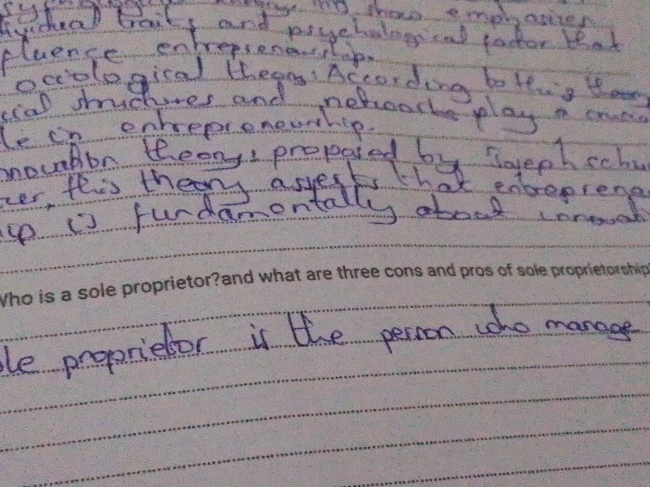 individual traits and psychological factor that
fluence entrepreneurship.
ociological theory: According to this theory
cial structures and networks play a crucia
le in entrepreneurship.
nnovation theory: proposed by Joseph schu
this theory asserts that entreprene
ip is fundamentally about innovati
Who is a sole proprietor?and what are three cons and pros of sole proprietorship
le proprietor is the person who manage